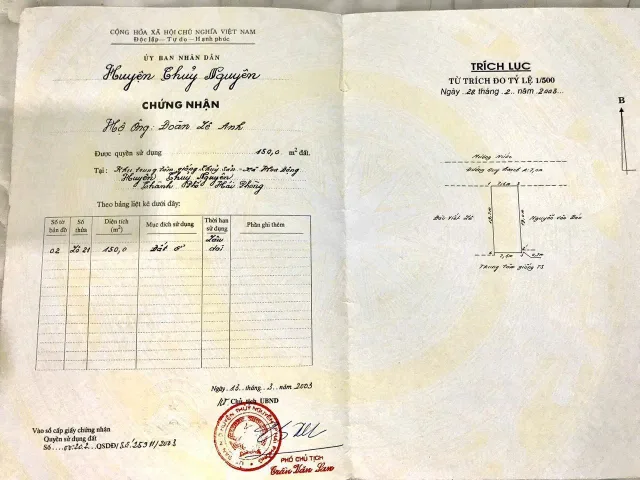 CỘNG HÒA XÃ HỘI CHỦ NGHĨA VIỆT NAM
Độc lập — Tự do — Hạnh phúc
ỦY BAN NHÂN DÂN
Huyện Thuỷ Nguyên
CHỨNG NHẬN
Hộ Ông: Đoàn Lê Anh
Được quyền sử dụng 150,0 m² đất.
Tại: Khu trung tâm giống Thuỷ Sản - Xã Hoa Động
Huyện Thuỷ Nguyên
Thành Phố Hải Phòng
Theo bảng liệt kê dưới đây:
Số tờ bản đồ
Số thửa
Diện tích (m²)
Mục đích sử dụng
Thời hạn sử dụng
Phần ghi thêm
02
Lô 21
150,0
Đất ở
Lâu dài
Ngày 15 tháng 3 năm 2003
KT Chủ tịch UBND
PHÓ CHỦ TỊCH
Trần Văn
Vào sổ cấp giấy chứng nhận
Quyền sử dụng đất
Số 00202 QSDĐ/
TRÍCH LỤC
TỪ TRÍCH ĐO TỶ LỆ 1/500
Ngày 28 tháng 2 năm 2003
B
Mương nước
Đường quy hoạch
7,6m
Nguyễn văn
Trung tâm giống TS